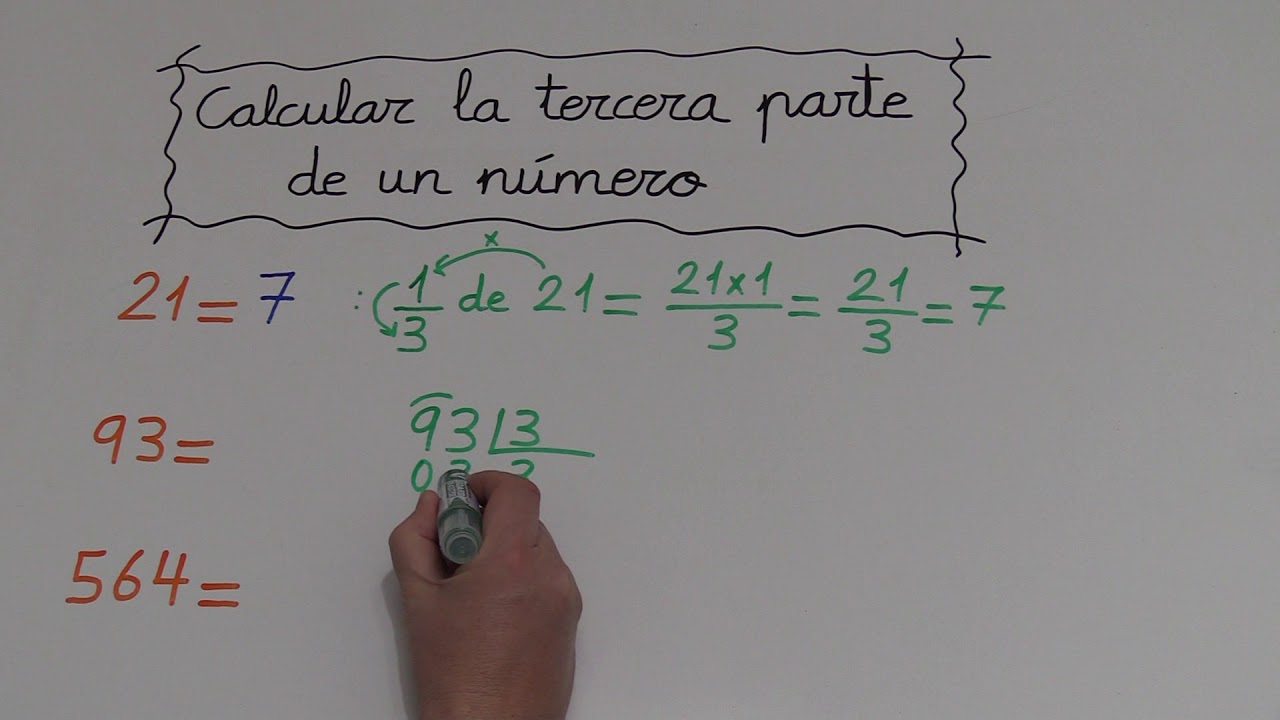 Calcular la tercera parte
de un número
21 = 7 : 1/3 de 21 = 21x1/3 = 21/3 = 7
x
93 =
93 3
0
564 =